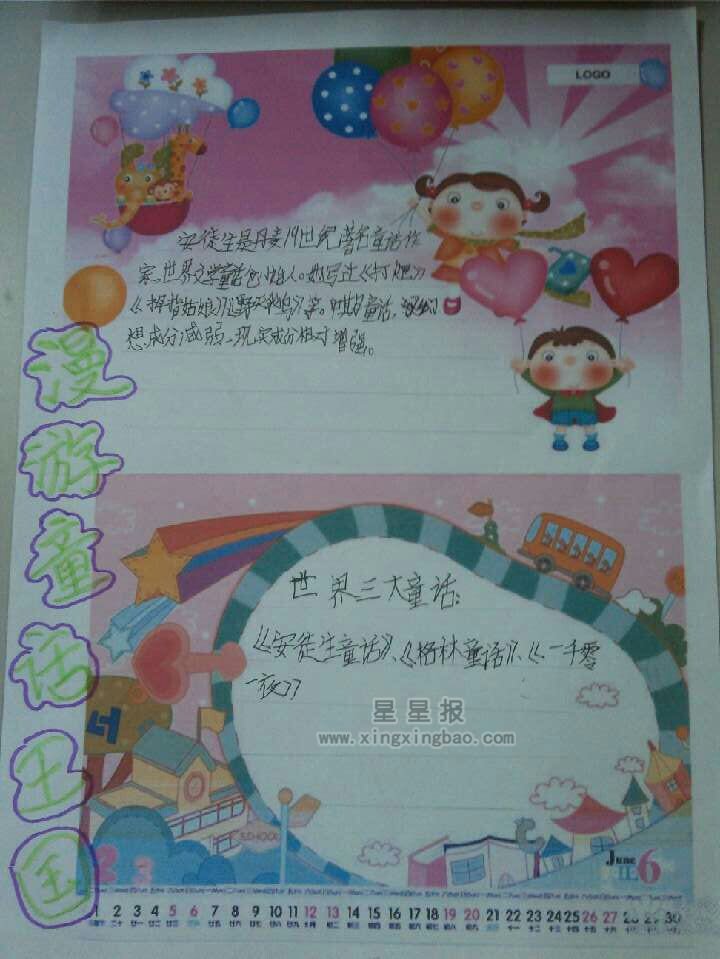 LOGO
安徒生是丹麦19世纪著名童话作
家、世界文学童话创始人。他写过《打火匣》
《拇指姑娘》《野天鹅》等。中期童话,
想成分减弱、现实成分相对增强。
漫游童话王国
世界三大童话:
《安徒生童话》、《格林童话》、《一千零
一夜》
星星报
www.xingxingbao.com
SCHOOL
June
6
1 2 3 4 5 6 7 8 9 10 11 12 13 14 15 16 17 18 19 20 21 22 23 24 25 26 27 28 29 30